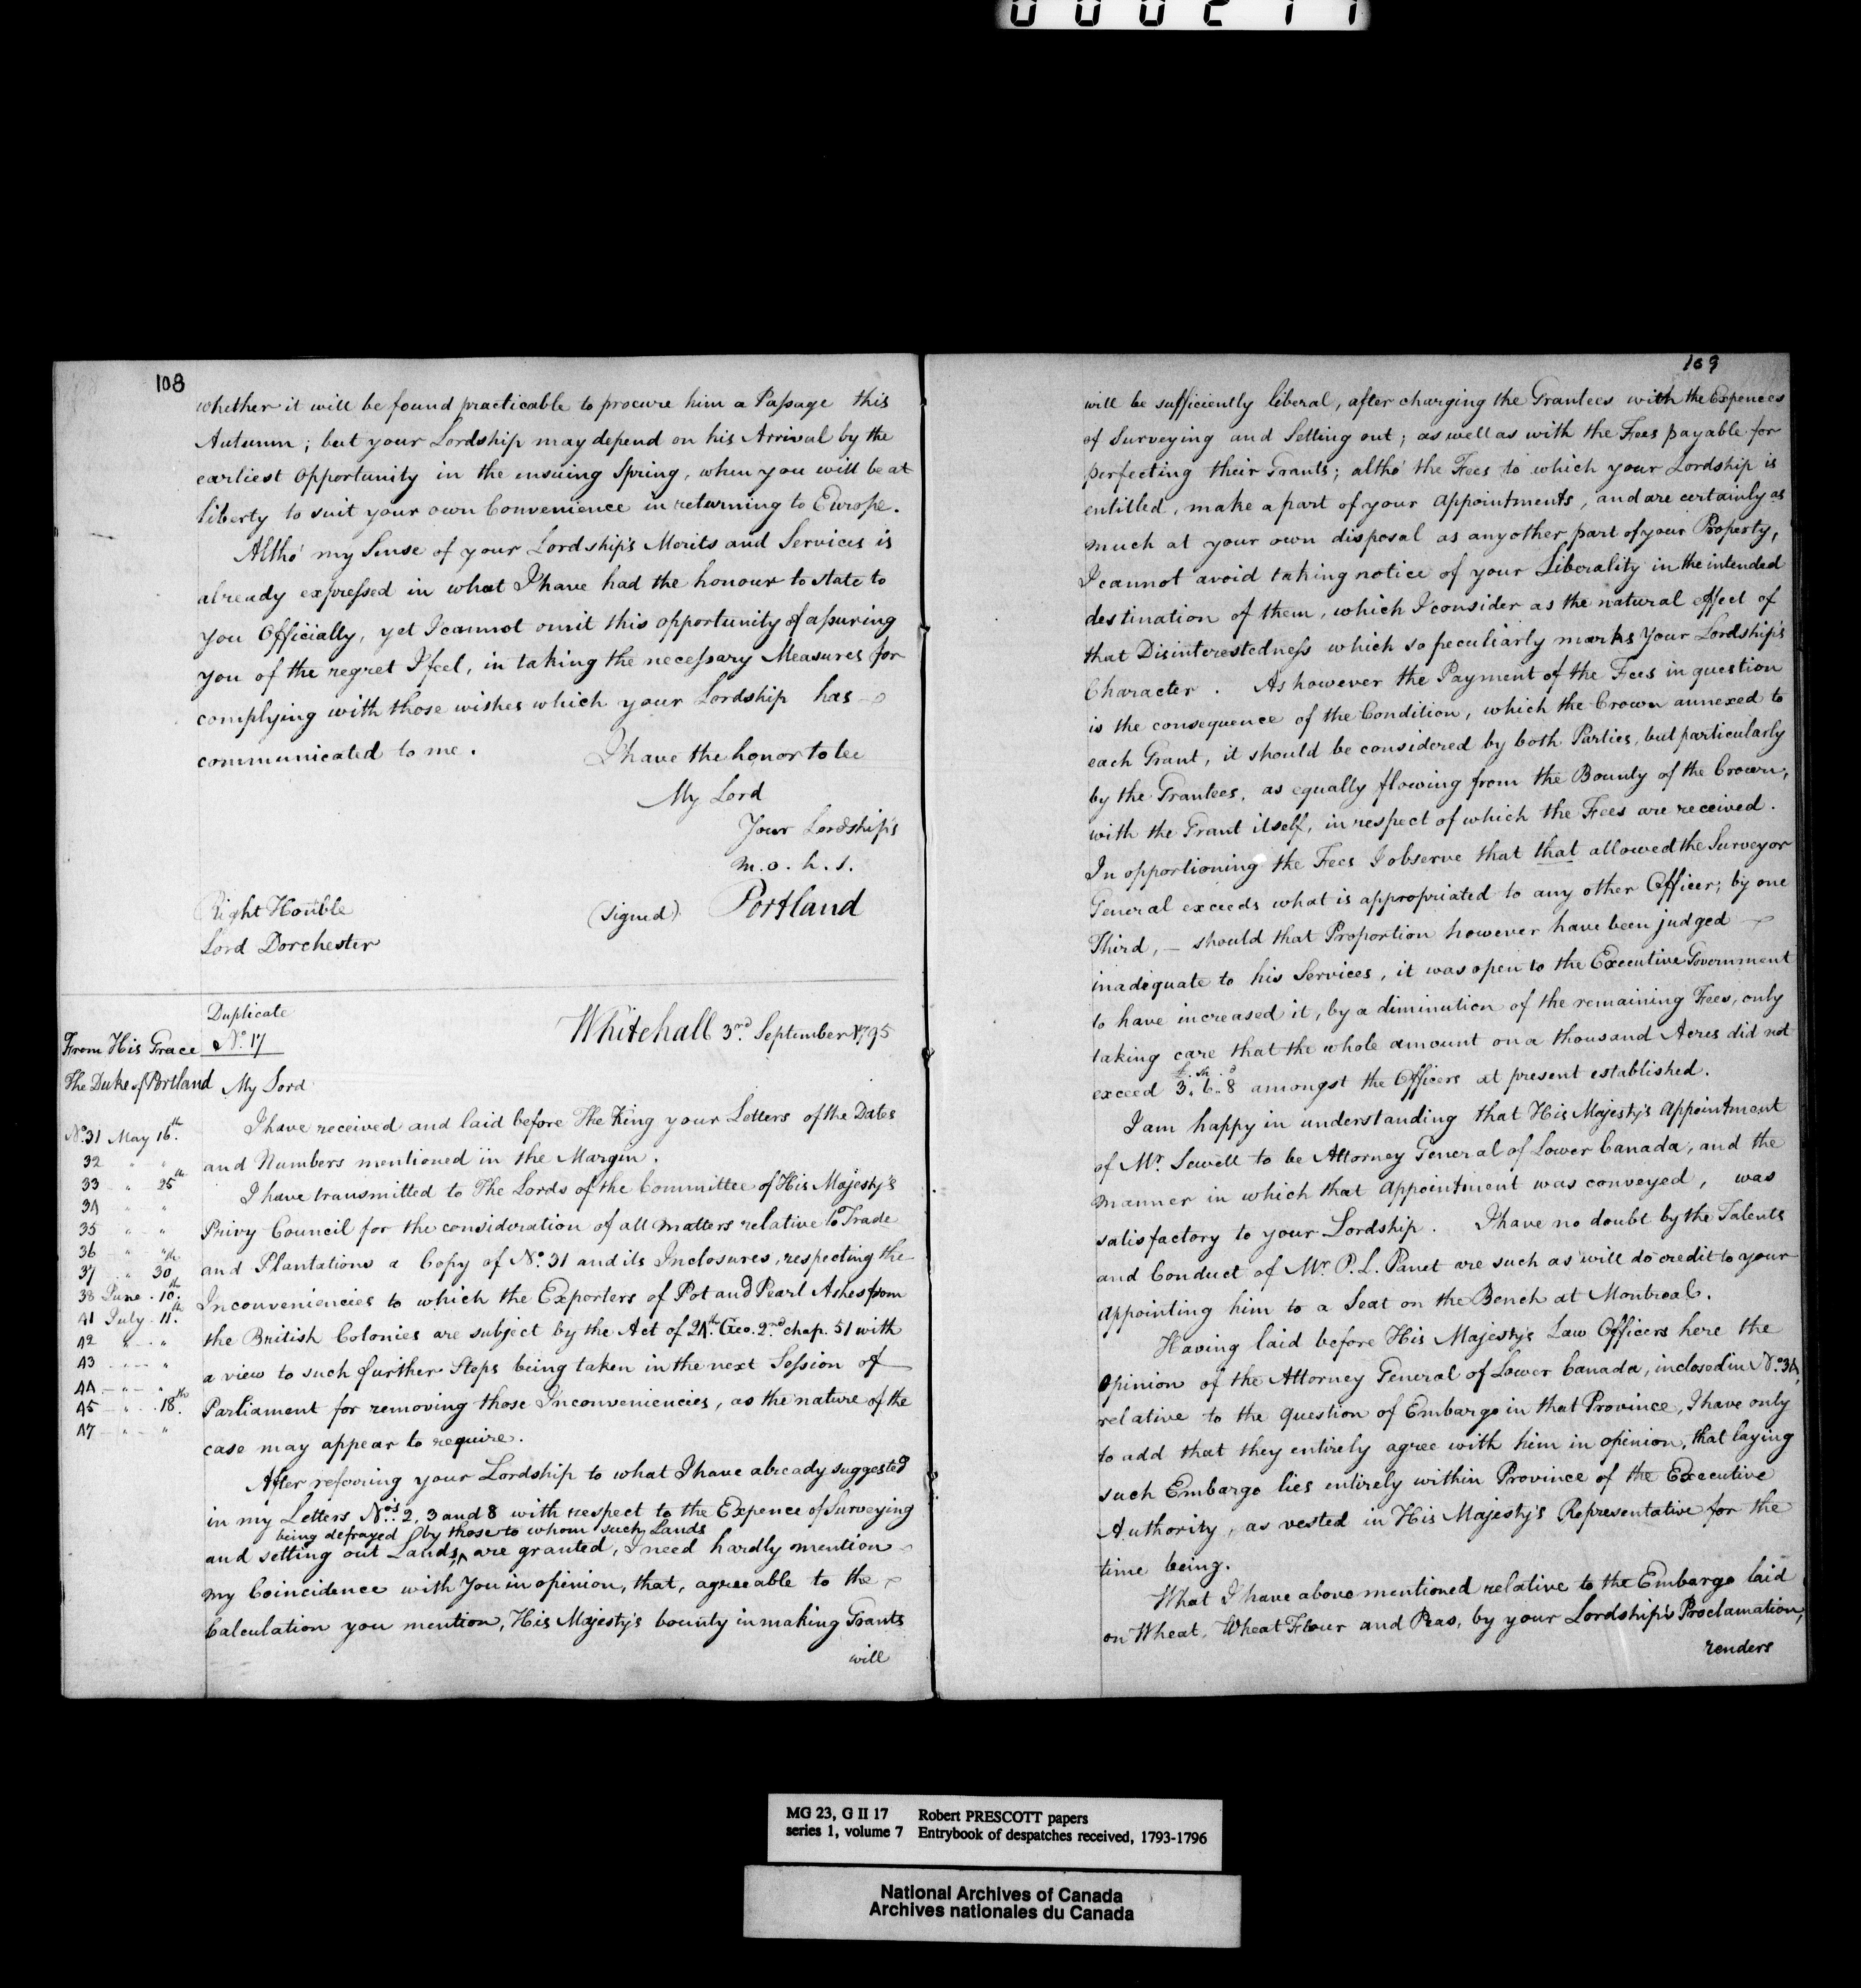 000211
108
whether it will be found practicable to procure him a Passage this
Autumn; but your Lordship may depend on his Arrival by the
earliest opportunity in the ensuing Spring, when you will be at
liberty to suit your own Convenience in returning to Europe.
Altho' my Sense of your Lordship's Merits and Services is
already expressed in what I have had the honour to state to
you Officially, yet I cannot omit this opportunity of assuring
you of the regret I feel, in taking the necessary Measures for
complying with those wishes which your Lordship has
communicated to me. I have the honor to be
My Lord
Your Lordship's
m. o. h. s.
(signed) Portland
Right Honble
Lord Dorchester
Duplicate
From His Grace No. 17
The Duke of Portland
Whitehall 3rd. September 1795
My Lord
No. 31 May 16th.
32 " "
33 " 25th
34 " "
35 " "
36 " "
37 " 30th
38 June . 10th.
41 July . 11th.
42 " "
43 " "
44 " "
45 " 18th.
47 " "
I have received and laid before The King your Letters of the Dates
and Numbers mentioned in the Margin.
I have transmitted to The Lords of the Committee of His Majesty's
Privy Council for the consideration of all matters relative to Trade
and Plantations a Copy of No. 31 and its Inclosures, respecting the
Inconveniencies to which the Exporters of Pot and Pearl Ashes from
the British Colonies are subject by the Act of 24th. Geo. 2nd chap. 51 with
a view to such further Steps being taken in the next Session of
Parliament for removing those Inconveniencies, as the nature of the
case may appear to require.
After referring your Lordship to what I have already suggested
in my Letters Nos. 2, 3 and 8 with respect to the Expence of Surveying
being defrayed by those to whom such Lands
and setting out Lands, ^ are granted, I need hardly mention
my Coincidence with You in opinion, that, agreeable to the
Calculation you mention, His Majesty's bounty in making Grants
will
109
will be sufficiently liberal, after charging the Grantees with the Expences
of Surveying and Setting out; as well as with the Fees payable for
perfecting their Grants; altho' the Fees to which your Lordship is
entitled, make a part of your appointments, and are certainly as
much at your own disposal as any other part of your Property,
I cannot avoid taking notice of your Liberality in the intended
destination of them, which I consider as the natural effect of
that Disinterestedness which so peculiarly marks Your Lordship's
Character. As however the Payment of the Fees in question
is the consequence of the Condition, which the Crown annexed to
each Grant, it should be considered by both Parties, but particularly
by the Grantees, as equally flowing from the Bounty of the Crown,
with the Grant itself, in respect of which the Fees are received.
In opportioning the Fees I observe that that allowed the Surveyor
General exceeds what is appropriated to any other Officer; by one
Third, — should that Proportion however have been judged
inadequate to his Services, it was open to the Executive Government
to have increased it, by a diminution of the remaining Fees, only
taking care that the whole amount on a thousand Acres did not
£. sh. d
exceed 3. 6. 8 amongst the Officers at present established.
I am happy in understanding that His Majesty's Appointment
of Mr. Sewell to be Attorney General of Lower Canada, and the
manner in which that Appointment was conveyed, was
satisfactory to your Lordship. I have no doubt by the Talents
and Conduct of Mr. P. L. Panet are such as will do credit to your
appointing him to a Seat on the Bench at Montreal.
Having laid before His Majesty's Law Officers here the
Opinion of the Attorney General of Lower Canada, inclosed in No. 34,
relative to the Question of Embargo in that Province, I have only
to add that they entirely agree with him in opinion, that laying
such Embargo lies entirely within Province of the Executive
Authority, as vested in His Majesty's Representative for the
time being.
What I have above mentioned relative to the Embargo laid
on Wheat, Wheat Flour and Peas, by your Lordship's Proclamation,
renders
MG 23, G II 17 Robert PRESCOTT papers
series 1, volume 7 Entrybook of despatches received, 1793-1796
National Archives of Canada
Archives nationales du Canada